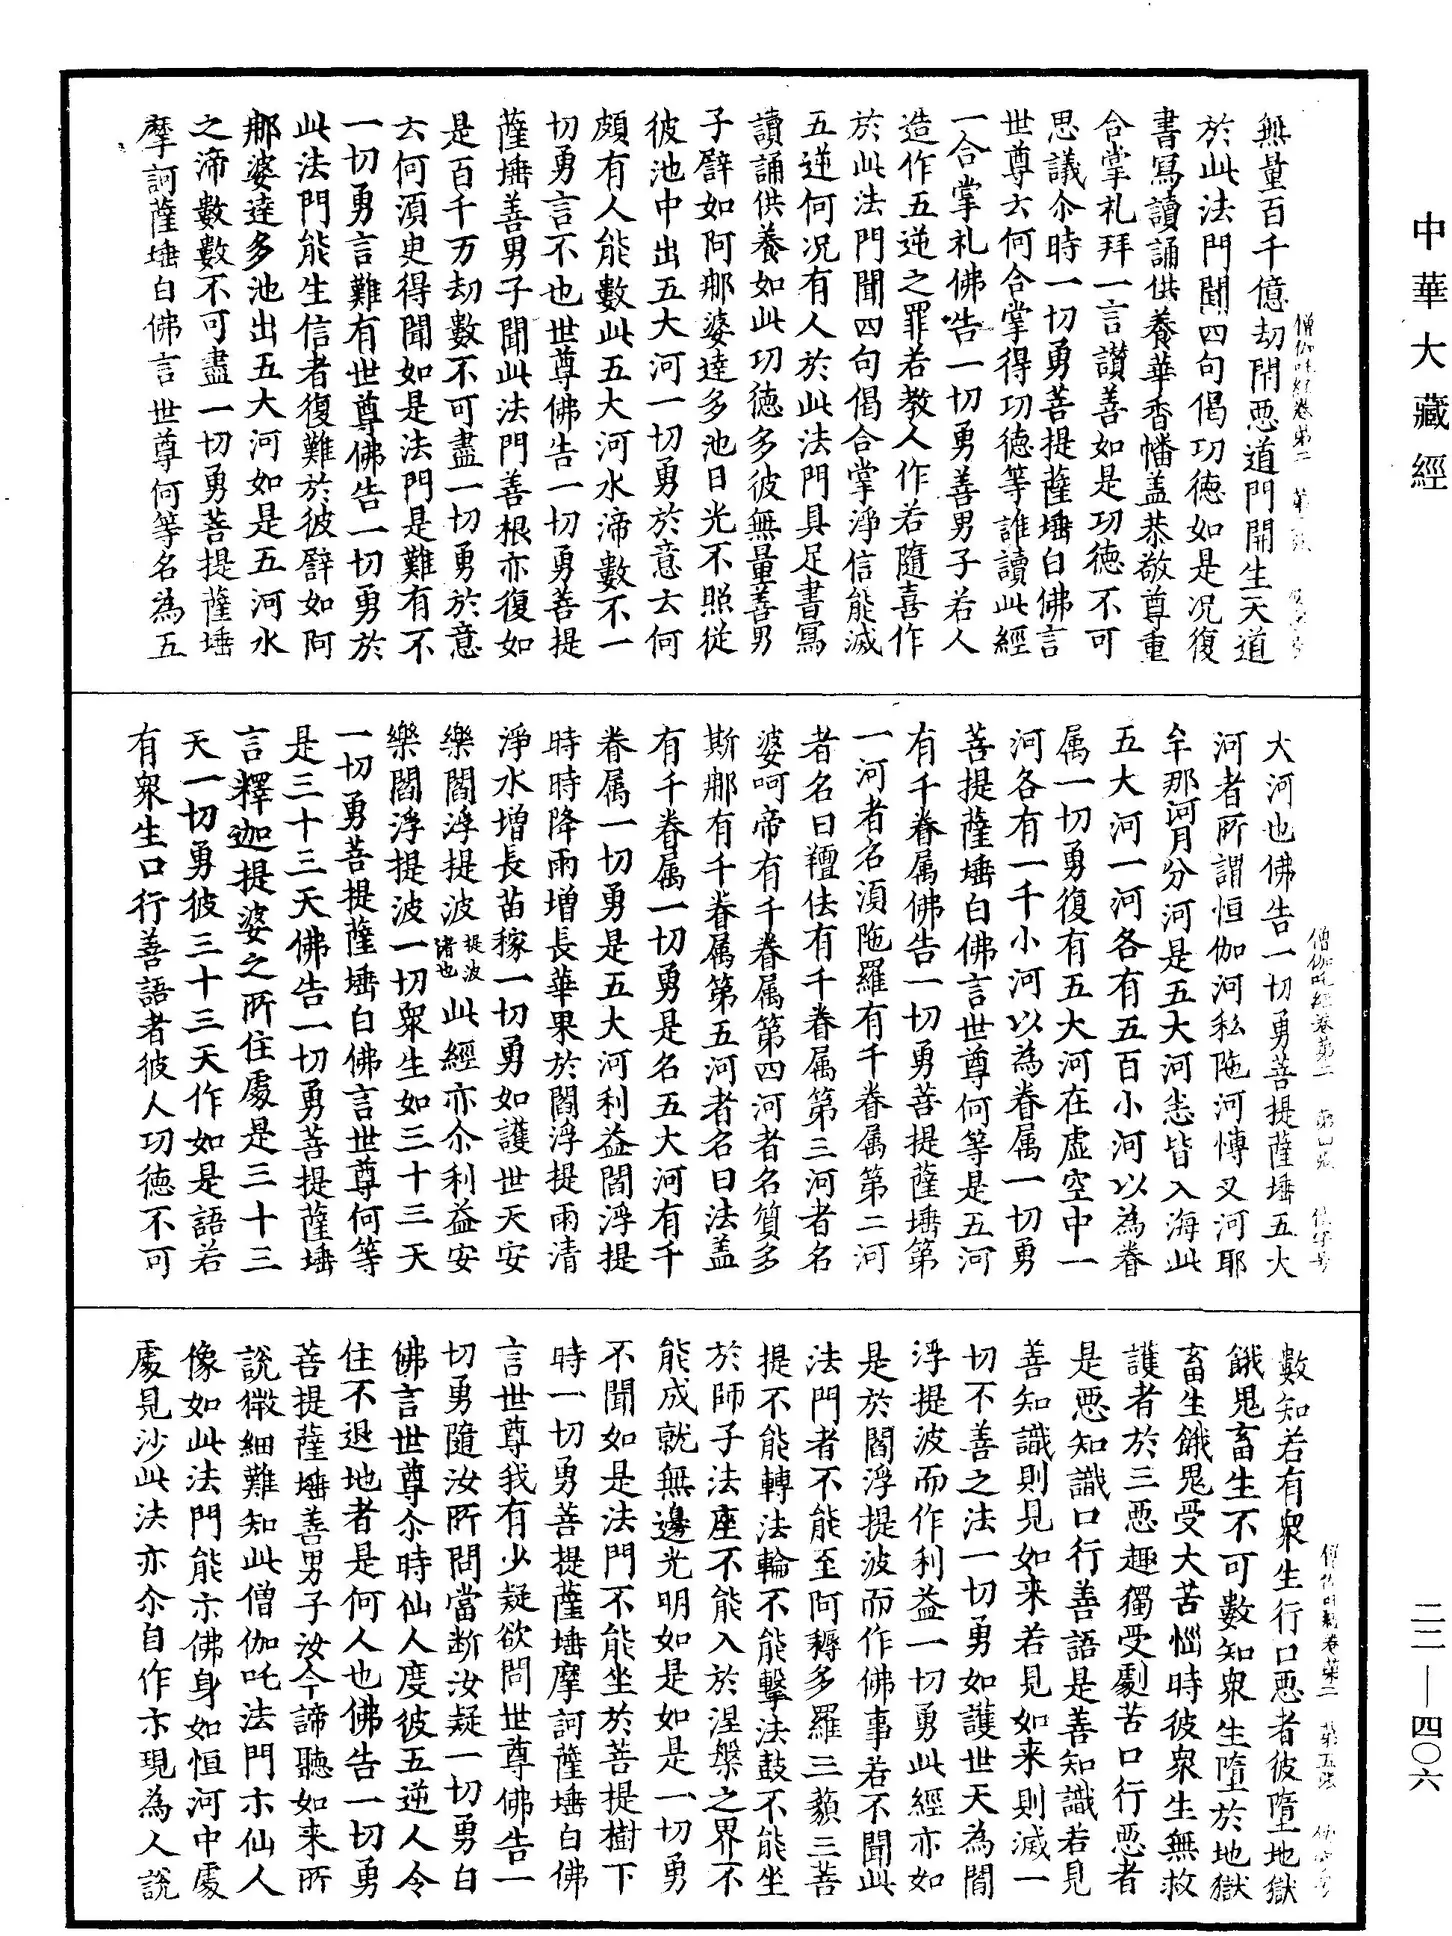 中華大藏經
無量百千億劫閇惡道門開生天道
於此法門聞四句偈功德如是况復
書寫讀誦供養華香幡盖恭敬尊重
合掌礼拜一言讃善如是功德不可
思議尒時一切勇菩提薩埵白佛言
世尊云何合掌得功德等誰讀此經
一合掌礼佛告一切勇善男子若人
造作五逆之罪若教人作若隨喜作
於此法門聞四句偈合掌淨信能滅
五逆何况有人於此法門具足書寫
讀誦供養如此功德多彼無量善男
子譬如阿那婆達多池日光不照從
彼池中出五大河一切勇於意云何
頗有人能數此五大河水渧數不一
切勇言不也世尊佛告一切勇菩提
薩埵善男子聞此法門善根亦復如
是百千万劫數不可盡一切勇於意
云何湏臾得聞如是法門是難有不
一切勇言難有世尊佛告一切勇於
此法門能生信者復難於彼譬如阿
那婆達多池出五大河如是五河水
之渧數數不可盡一切勇菩提薩埵
摩訶薩埵白佛言世尊何等名為五
大河也佛告一切勇菩提薩埵五大
河者所謂恒伽河私陁河愽叉河耶
牟那河月分河是五大河悉皆入海此
五大河一河各有五百小河以為眷
属一切勇復有五大河在虛空中一
河各有一千小河以為眷属一切勇
菩提薩埵白佛言世尊何等是五河
有千眷属佛告一切勇菩提薩埵第
一河者名湏陁羅有千眷属第二河
者名曰羶佉有千眷属第三河者名
婆呵帝有千眷属第四河者名質多
斯那有千眷属第五河者名曰法盖
有千眷属一切勇是名五大河有千
眷属一切勇是五大河利益閻浮提
時時降雨增長華果於閻浮提雨清
淨水增長苗稼一切勇如護世天安
樂閻浮提波提波渚也此經亦尒利益安
樂閻浮提波一切衆生如三十三天
一切勇菩提薩埵白佛言世尊何等
是三十三天佛告一切勇菩提薩埵
言釋迦提婆之所住處是三十三
天一切勇彼三十三天作如是語若
有衆生口行善語者彼人功德不可
數知若有衆生行口惡者彼墮地獄
餓鬼畜生不可數知衆生墮於地獄
畜生餓鬼受大苦惱時彼衆生無救
護者於三惡趣獨受劇苦口行惡者
是惡知識口行善語是善知識若見
善知識則見如来若見如来則滅一
切不善之法一切勇如護世天為閻
浮提波而作利益一切勇此經亦如
是於閻浮提波而作佛事若不聞此
法門者不能至阿耨多羅三藐三菩
提不能轉法輪不能擊法鼓不能坐
於師子法座不能入於涅槃之界不
能成就無邊光明如是如是一切勇
不聞如是法門不能坐於菩提樹下
時一切勇菩提薩埵摩訶薩埵白佛
言世尊我有少疑欲問世尊佛告一
切勇隨汝所問當断汝疑一切勇白
佛言世尊尒時仙人度彼五逆人令
住不退地者是何人也佛告一切勇
菩提薩埵善男子汝今諦聽如来所
說微細難知此僧伽吒法門示仙人
像如此法門能示佛身如恒河中處
處見沙此法亦尒自作示現為人說
二二—四〇六